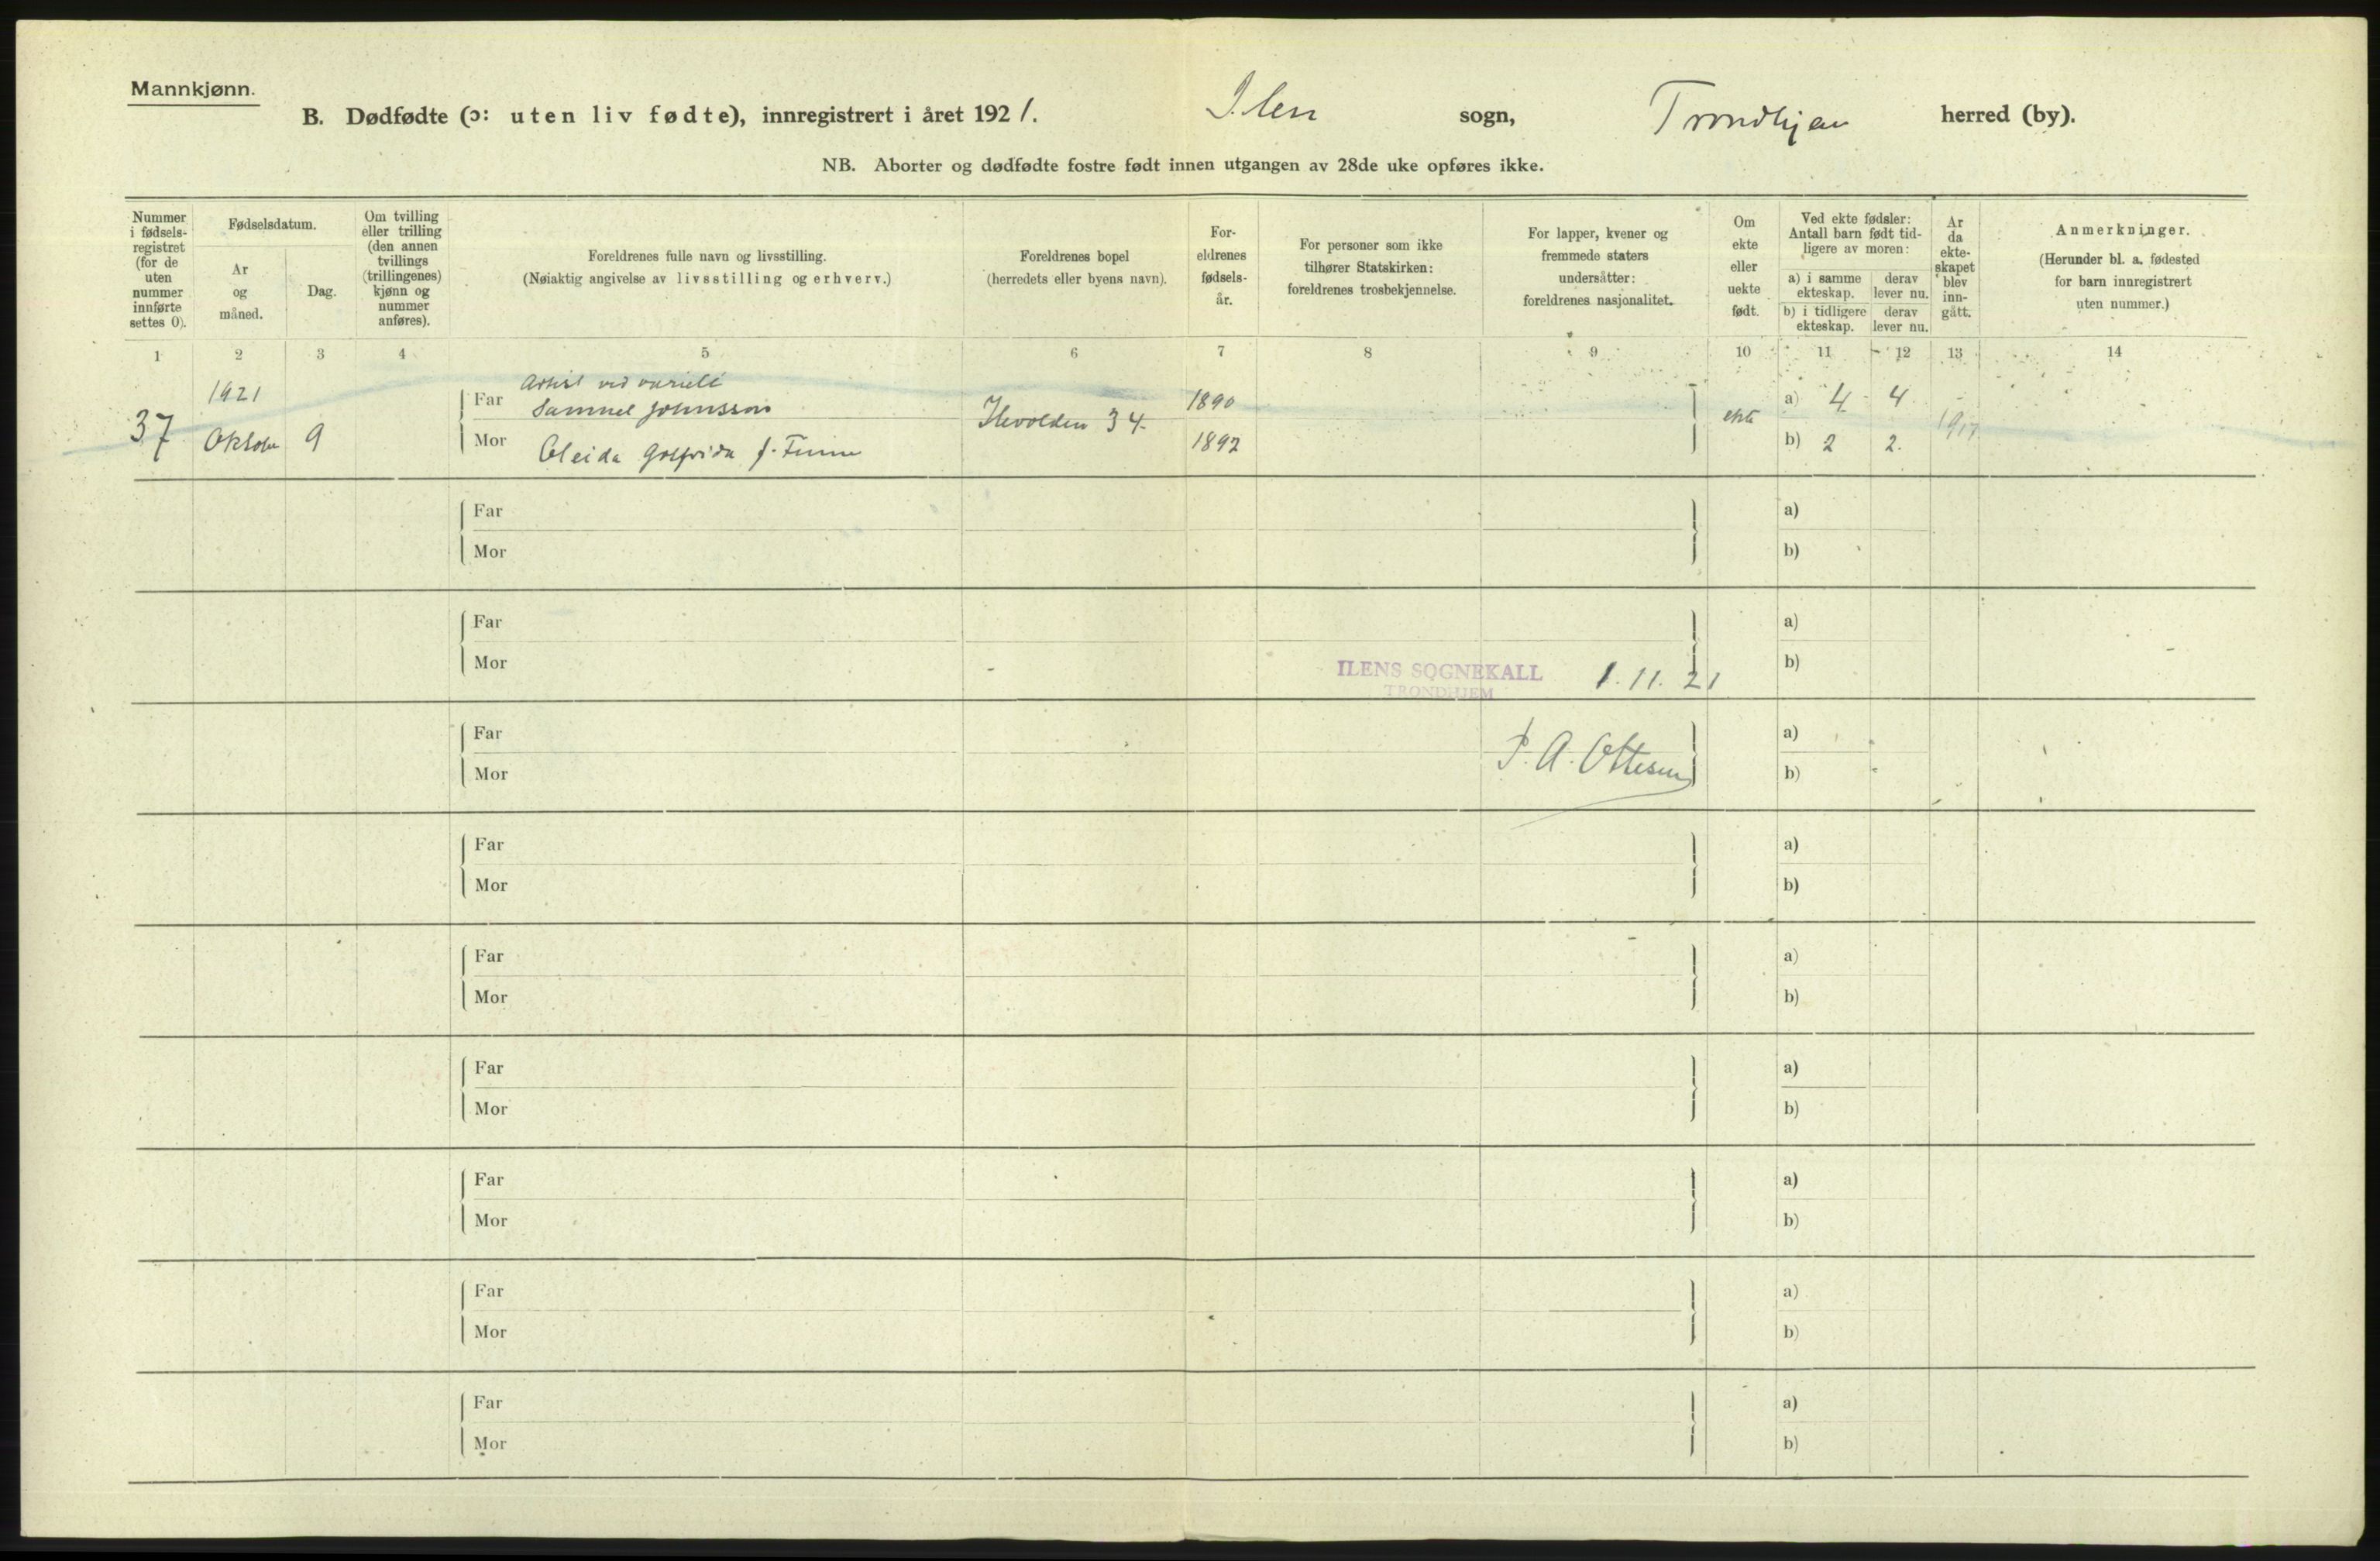 Mannkjønn.
B. Dødfødte (ɔ: uten liv fødte), innregistrert i året 1921. Ilen sogn, Trondhjem herred (by).
NB. Aborter og dødfødte fostre født innen utgangen av 28de uke opføres ikke.
Nummer i fødsels-registret (for de uten nummer innførte settes 0).
Fødselsdatum.
Ar og måned.
Dag.
Om tvilling eller trilling (den annen tvillings (trillingenes) kjønn og nummer anføres).
Foreldrenes fulle navn og livsstilling.
(Nøiaktig angivelse av livsstilling og erhverv.)
Foreldrenes bopel
(herredets eller byens navn).
For-eldrenes fødsels-år.
For personer som ikke tilhører Statskirken: foreldrenes trosbekjennelse.
For lapper, kvener og fremmede staters undersåtter: foreldrenes nasjonalitet.
Om ekte eller uekte født.
Ved ekte fødsler: Antall barn født tid-ligere av moren:
a) i samme ekteskap.
derav lever nu.
b) i tidligere ekteskap.
derav lever nu.
Ar da ekte-skapet blev inn-gått.
Anmerkninger.
(Herunder bl. a. fødested for barn innregistrert uten nummer.)
1 2 3 4 5 6 7 8 9 10 11 12 13 14
37 1921 Oktober 9
Artist ved varieté
Far Samuel Johnsson 1890 a) 4 4
Ilevolden 34 ekte 1917
Mor f. Finne 1892 b) 2 2.
Far a)
Mor b)
Far a)
Mor b)
ILENS SOGNEKALL 1.11.21
TRONDHJEM
Far a)
P. A. Ottesen
Mor b)
Far a)
Mor b)
Far a)
Mor b)
Far a)
Mor b)
Far a)
Mor b)
Far a)
Mor b)
Far a)
Mor b)